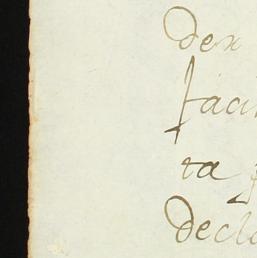 den
faci
ta
decla